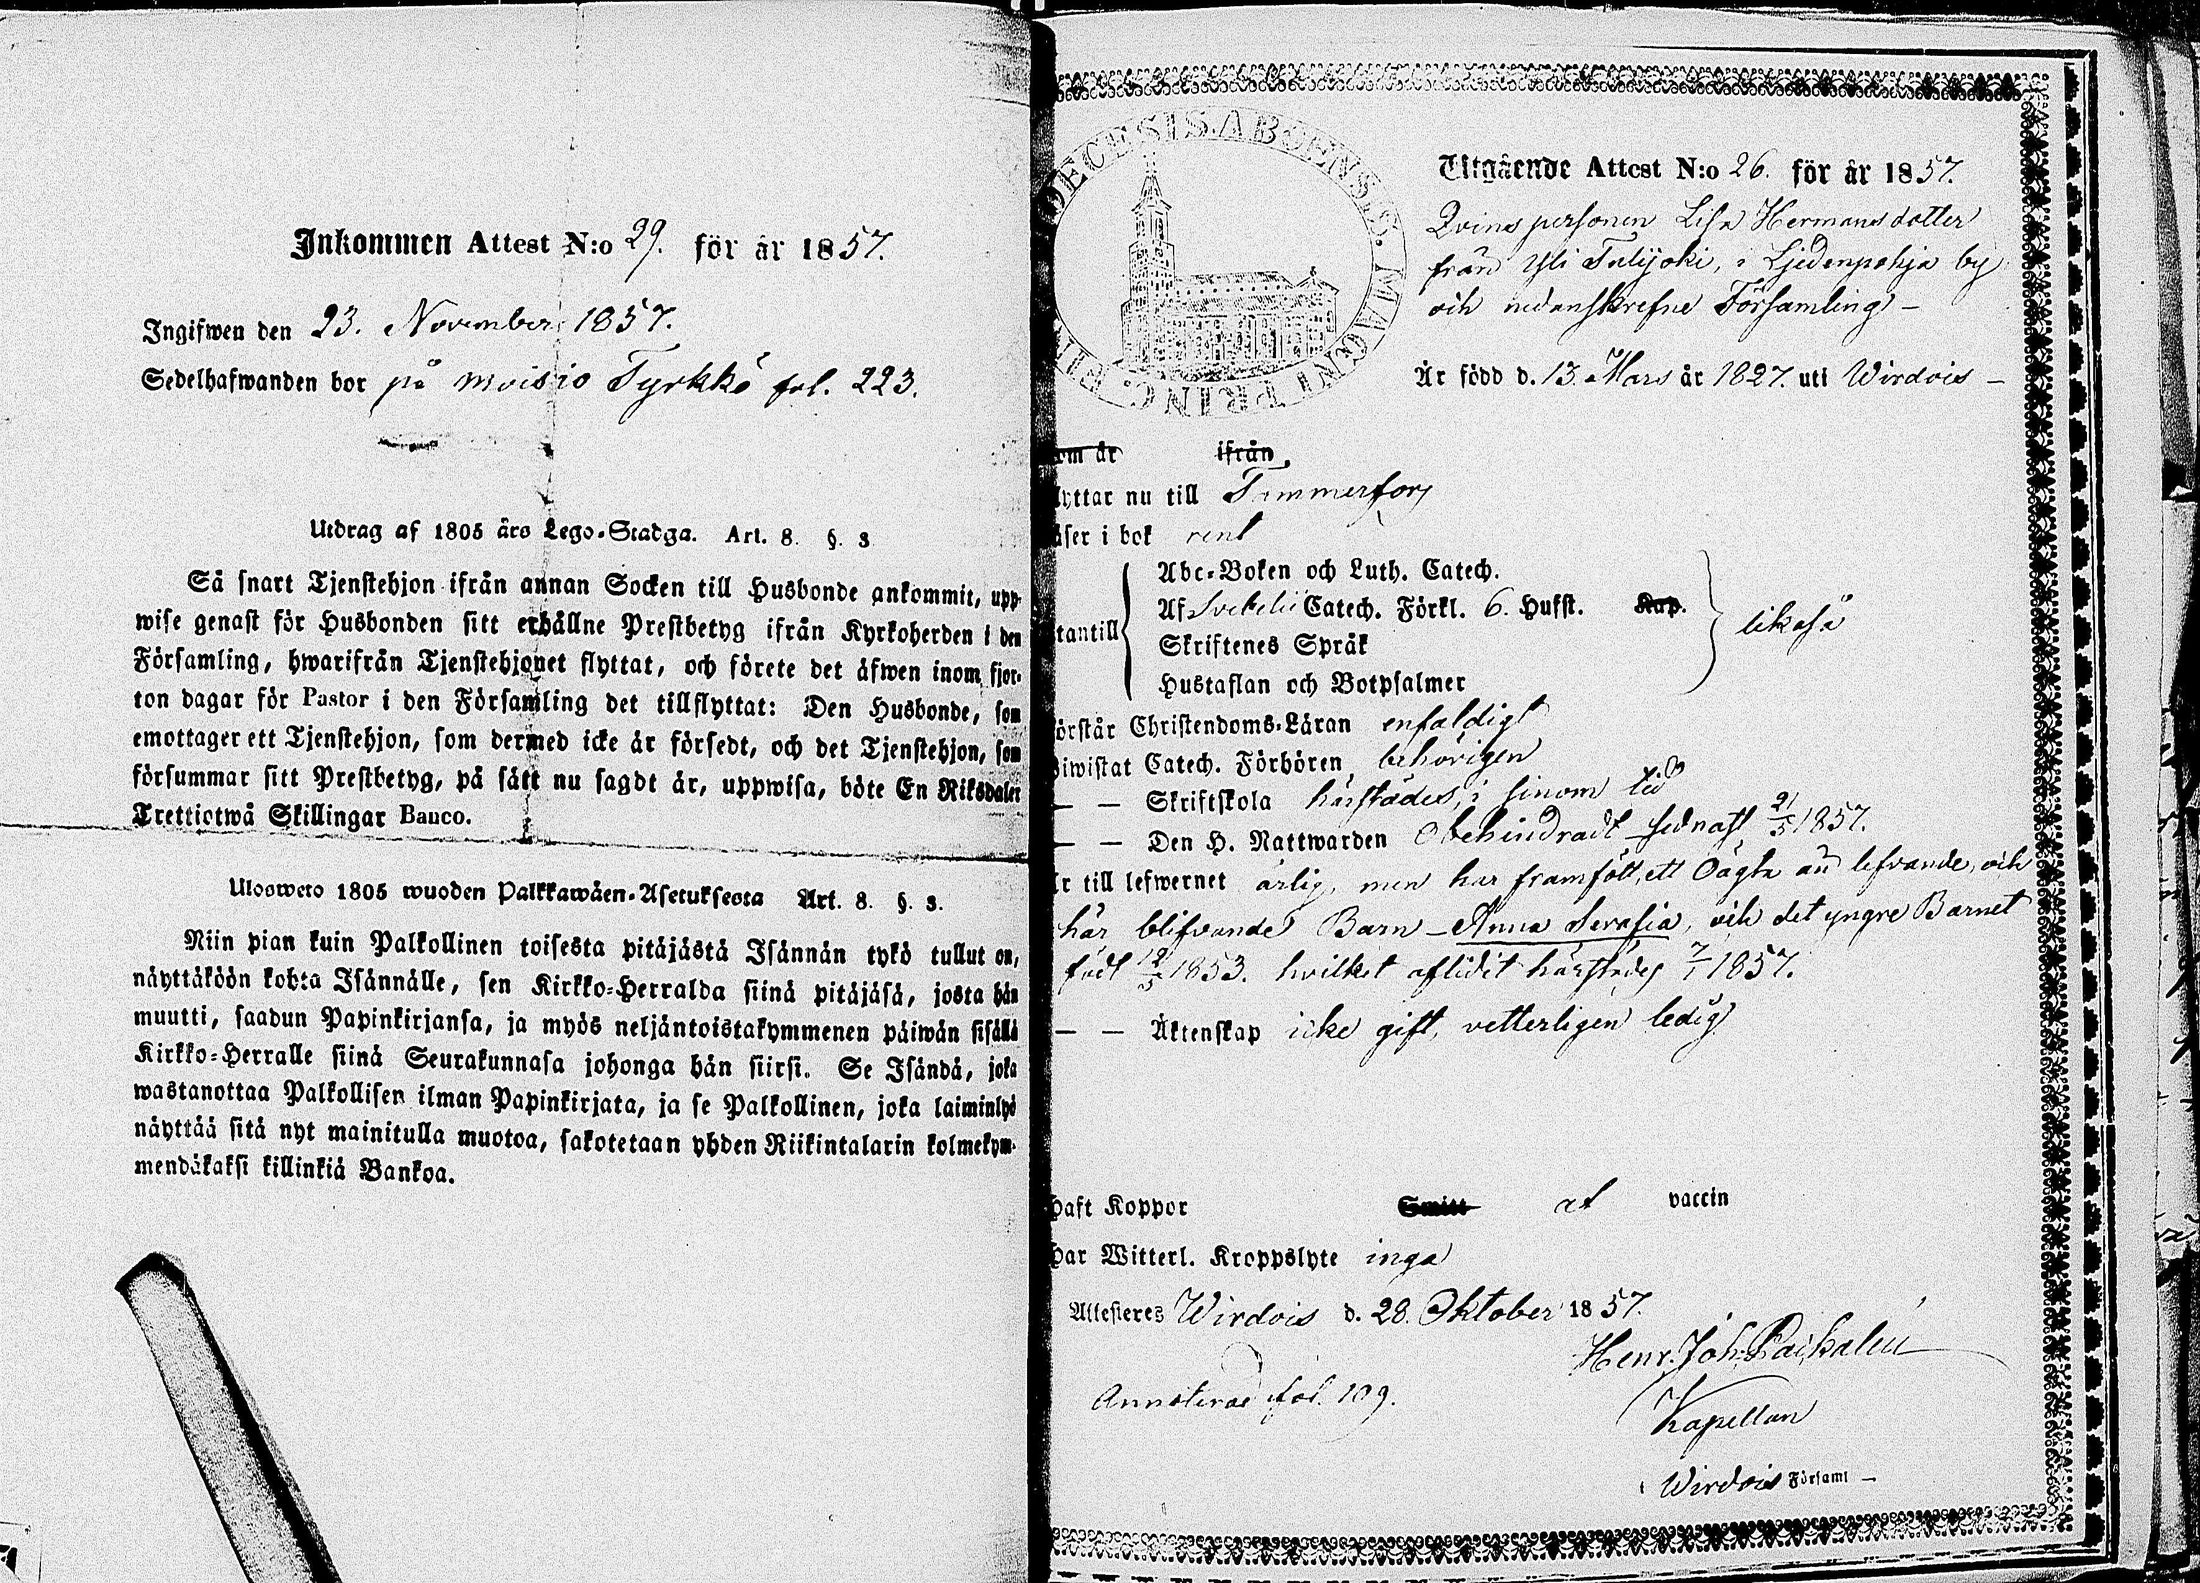 Inkommen Attest N:o 29. för år 1857.
Ingifwen den 23. November 1857.
Sedelhafwanden bor på moisio Tyrkkö fol. 223.
Utdrag af 1805 års Lego-Stadga. Art. 8. §. 3
Så snart Tjenstehjon ifrån annan Socken till Husbonde ankommit, upp-
wise genast för Husbonden sitt erhållne Prestbetyg ifrån Kyrkoherden i den
Församling, hwarifrån Tjenstehjonet flyttat, och förete det äfwen inom fjor-
ton dagar för Pastor i den Församling det tillflyttat: Den Husbonde, som
emottager ett Tjenstehjon, som dermed icke är försedt, och det Tjenstehjon, som
försummar sitt Prestbetyg, på sätt nu sagdt är, uppwisa, böte En Riksdaler
Trettiotwå Skillingar Banco.
Ulosweto 1805 wuoden Palkkawäen-Asetuksesta Art. 8. §. 3.
Niin pian kuin Palkollinen toisesta pitäjästä Isännän tykö tullut on,
näyttäköön kohta Isännälle, sen Kirkko-Herralda siinä pitäjäsä, josta hän
muutti, saadun Papinkirjansa, ja myös neljäntoistakymmenen päiwän sisällä
Kirkko-Herralle siinä Seurakunnasa johonga hän siirsi. Se Isändä, joka
wastanottaa Palkollisen ilman Papinkirjata, ja se Palkollinen, joka laiminlyö
näyttää sitä nyt mainitulla muotoa, sakotetaan yhden Riikintalarin kolmekym-
mendäkaksi killinkiä Bankoa.
DECESIS. ABOENSIS. MAGNI PRINC. FI
Utgående Attest N:o 26. för år 1857.
Qvinspersonen Lisa Hermansdotter
från Yli Tulijoki, i Ljedenpohja by
och nedanskrefne Församling -
Är född d. 13. Mars år 1827. uti Wirdois -
om är ifrån
lyttar nu till Tammerfors
äser i bok rent
Abc-Boken och Luth. Catech.
Af Svebelii Catech. Förkl. 6. Hufst. Kap.
tantill likaså
Skriftenes Språk
Hustaflan och Botpsalmer
örstår Christendoms-Läran enfaldigt
iwistat Catech. Förhören behörigen
— — Skriftskola härstädes, i sinom tid
— — Den H. Nattwarden Obehindradt sednast 21/5 1857.
r till lefwernet ärlig, men har framfött, ett Oägta än lefvande, och
här blifvande Barn - Anna Serafia, och det yngre Barnet
födt 12/5 1853. hvilket aflidit härstädes 7/1 1857.
— — Äktenskap icke gift, vetterligen ledig
haft Koppor Smitt af vaccin
har Witterl. Kroppslyte inga
Attesteres Wirdois d. 28. Oktober 1857.
Henr. Joh.
Annoteras fol. 109.
Kapellan
Wirdois Församl —